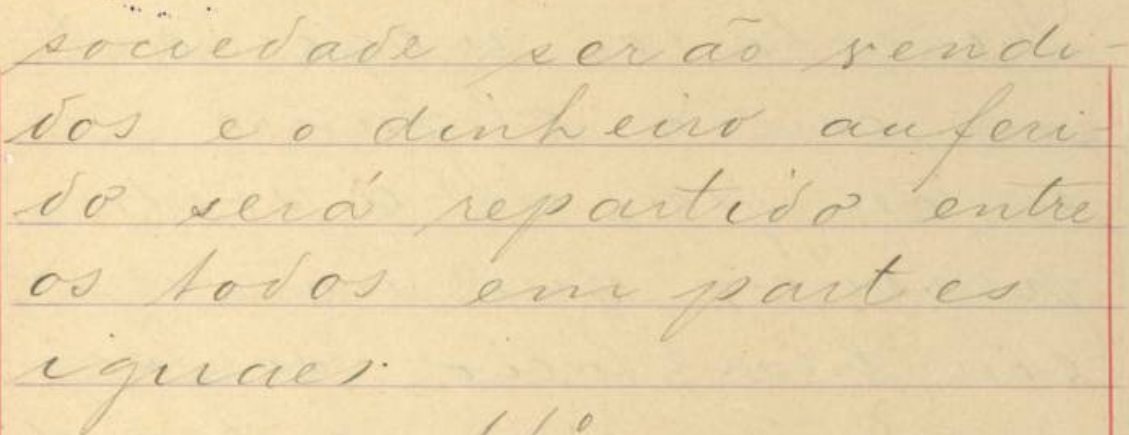 sociedade serão vendi-
dos e o dinheiro auferi-
do será repartido entre
os todos em partes
iguaes.